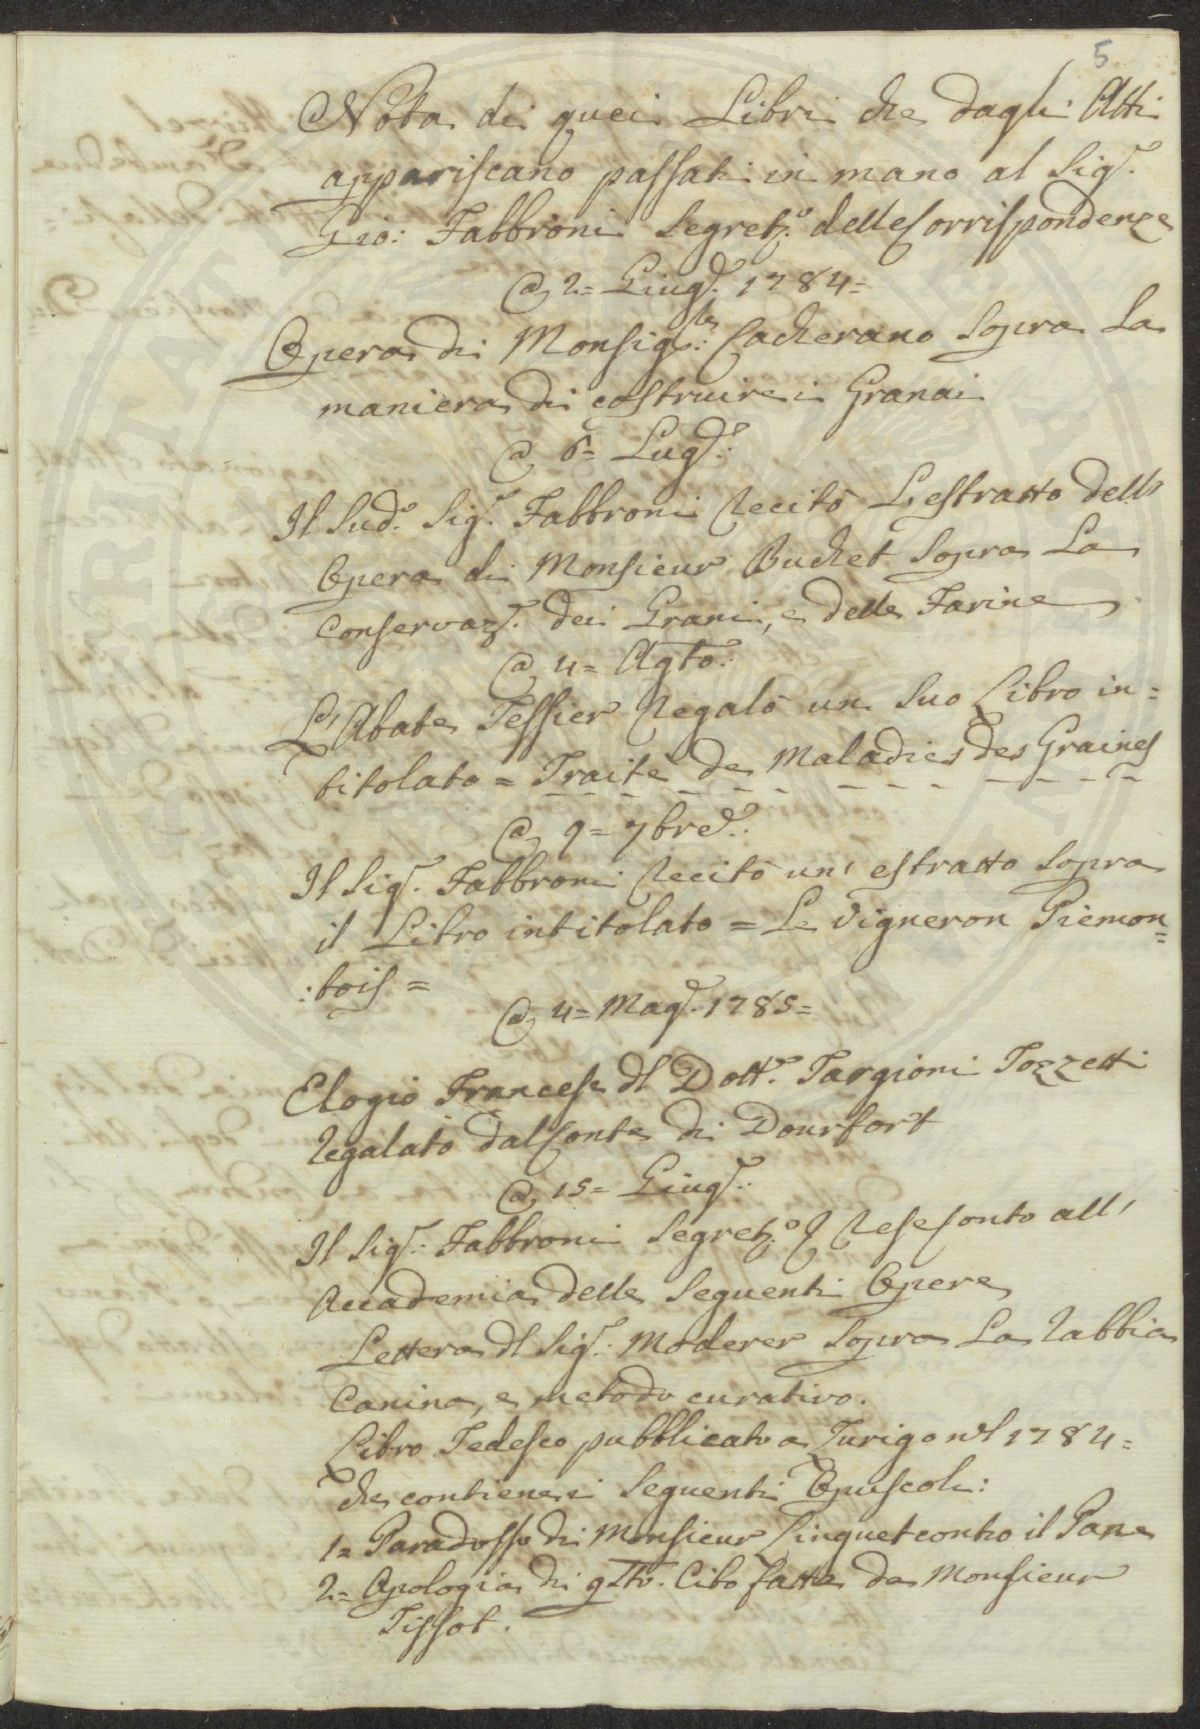 5
Nota di quei Libri che dagli Atti
appariscano passati in mano al Sig.r
Gio: Fabbroni Segret.o delle Corrispondenze
@ 2= Giug.o 1784=
Opera di Monsig.r: Cacherano sopra la
maniera di costruire i Granai
@ 6= Lug.o:
Il Sud.o Sig.r Fabbroni recitò L'estratto dell'
Opera di Monsieur Buchet sopra La
Conservaz.e dei Grani, e delle Farine
@ 4= Agto:
L'Abate Tessier regalò un suo Libro in=
titolato = Traitè de Maladies des Graines
@ 9= 7bre:
Il Sig.r Fabbroni recitò un' estratto sopra
il Libro intitolato = Le Vigneron Piemon=
:tois =
@ 4= Mag.o 1785=
Elogio Francese dl Dott.r Targioni Tozzetti
regalato dal Conte di Dourfort
@ 15= Giug.o:
Il Sig.r: Fabbroni Segret.o rese Conto all'
Accademia delle seguenti Opere
Lettera dl Sig.r: Moderer sopra La rabbia
Canina, e metodo curativo.
Libro Tedesco pubblicato a Zurigo nel 1784=
che contiene i seguenti Opuscoli:
1= Paradosso di Monsieur Linguet contro il Pane
2= Apologia di qsto. Cibo fatta da Monsieur
Tissot.